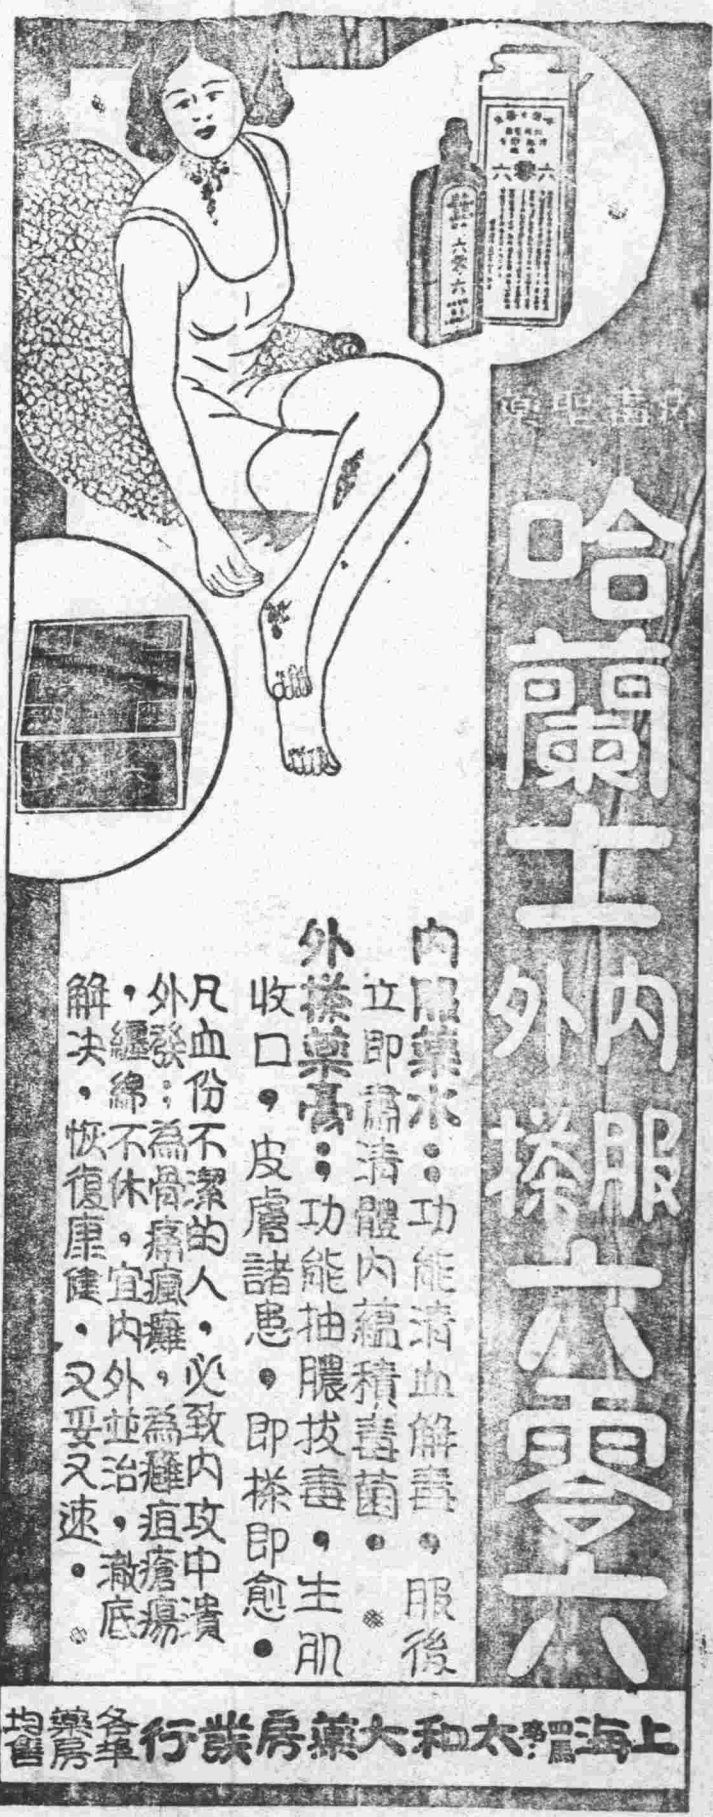 哈蘭士
內服
外搽
六零六
內服藥水；功能清血解毒，服後
立即肅清體內蘊積毒菌。
外搽藥膏；功能抽膿拔毒，生肌
收口，皮膚諸患，即搽即愈。
凡血份不潔的人，必致內攻中潰
外發；為骨痛瘋癱，為癰疽瘡瘍
，纏綿不休，宜內外並治，澈底
解决，恢復康健，又妥又速。
六零六
六零六
上海四馬路太和大藥房發行
各埠
藥房
均售